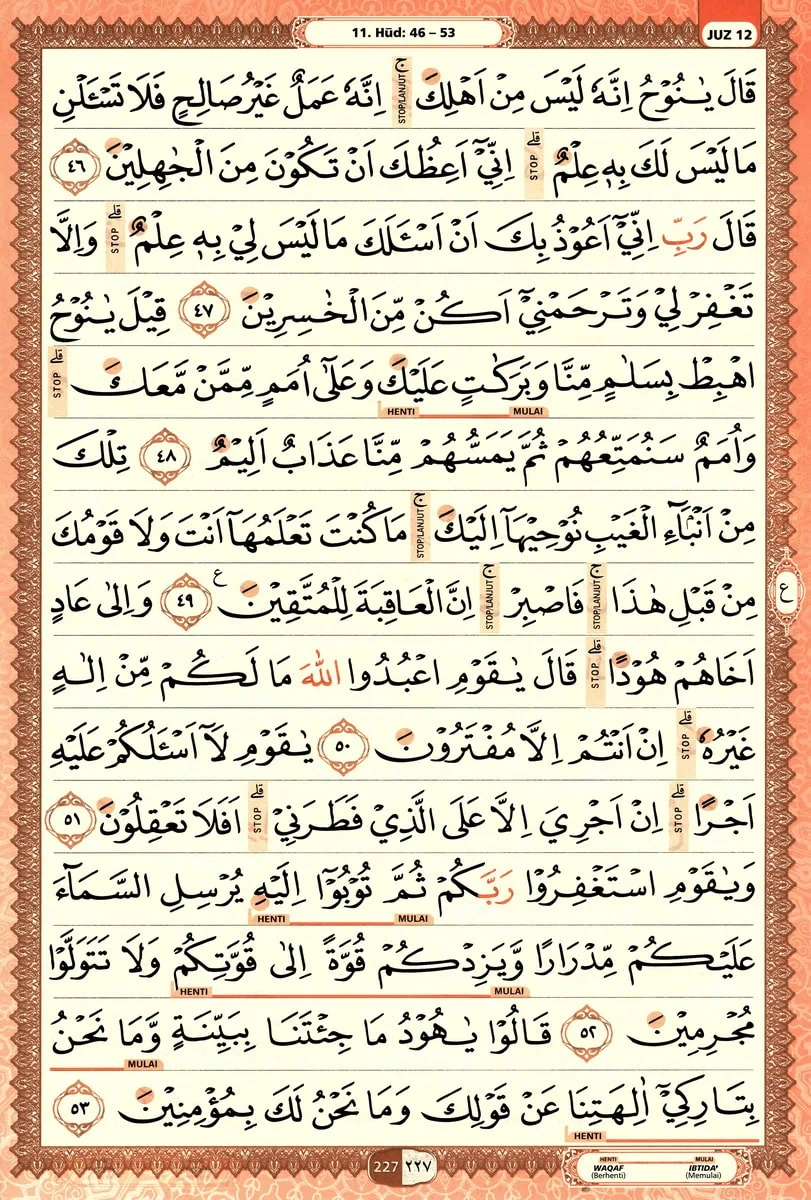 11. Hūd: 46 – 53
JUZ 12
قَالَ يٰنُوْحُ اِنَّهٗ لَيْسَ مِنْ اَهْلِكَ ۚ STOP/LANJUT اِنَّهٗ عَمَلٌ غَيْرُ صَالِحٍ فَلَا تَسْـَٔلْنِ
مَا لَيْسَ لَكَ بِهٖ عِلْمٌ ۗ STOP اِنِّيْٓ اَعِظُكَ اَنْ تَكُوْنَ مِنَ الْجٰهِلِيْنَ ٤٦
قَالَ رَبِّ اِنِّيْٓ اَعُوْذُ بِكَ اَنْ اَسْـَٔلَكَ مَا لَيْسَ لِيْ بِهٖ عِلْمٌ ۗ STOP وَاِلَّا
تَغْفِرْ لِيْ وَتَرْحَمْنِيْٓ اَكُنْ مِّنَ الْخٰسِرِيْنَ ٤٧ قِيْلَ يٰنُوْحُ
اهْبِطْ بِسَلٰمٍ مِّنَّا وَبَرَكٰتٍ عَلَيْكَ وَعَلٰٓى اُمَمٍ مِّمَّنْ مَّعَكَ ۗ STOP
HENTI MULAI
وَاُمَمٌ سَنُمَتِّعُهُمْ ثُمَّ يَمَسُّهُمْ مِّنَّا عَذَابٌ اَلِيْمٌ ٤٨ تِلْكَ
مِنْ اَنْۢبَاۤءِ الْغَيْبِ نُوْحِيْهَآ اِلَيْكَ ۚ STOP/LANJUT مَا كُنْتَ تَعْلَمُهَآ اَنْتَ وَلَا قَوْمُكَ
مِنْ قَبْلِ هٰذَا ۚ STOP/LANJUT فَاصْبِرْ ۚ STOP/LANJUT اِنَّ الْعَاقِبَةَ لِلْمُتَّقِيْنَ ع ٤٩ وَاِلٰى عَادٍ
ع
اَخَاهُمْ هُوْدًا ۗ STOP قَالَ يٰقَوْمِ اعْبُدُوا اللّٰهَ مَا لَكُمْ مِّنْ اِلٰهٍ
غَيْرُهٗ ۗ STOP اِنْ اَنْتُمْ اِلَّا مُفْتَرُوْنَ ٥٠ يٰقَوْمِ لَآ اَسْـَٔلُكُمْ عَلَيْهِ
اَجْرًا ۗ STOP اِنْ اَجْرِيَ اِلَّا عَلَى الَّذِيْ فَطَرَنِيْ ۗ STOP اَفَلَا تَعْقِلُوْنَ ٥١
وَيٰقَوْمِ اسْتَغْفِرُوْا رَبَّكُمْ ثُمَّ تُوْبُوْٓا اِلَيْهِ يُرْسِلِ السَّمَاۤءَ
HENTI MULAI
عَلَيْكُمْ مِّدْرَارًا وَّيَزِدْكُمْ قُوَّةً اِلٰى قُوَّتِكُمْ وَلَا تَتَوَلَّوْا
HENTI MULAI
مُجْرِمِيْنَ ٥٢ قَالُوْا يٰهُوْدُ مَا جِئْتَنَا بِبَيِّنَةٍ وَّمَا نَحْنُ
MULAI
بِتَارِكِيْٓ اٰلِهَتِنَا عَنْ قَوْلِكَ وَمَا نَحْنُ لَكَ بِمُؤْمِنِيْنَ ٥٣
HENTI
227 ٢٢٧
HENTI MULAI
WAQAF IBTIDA'
(Berhenti) (Memulai)